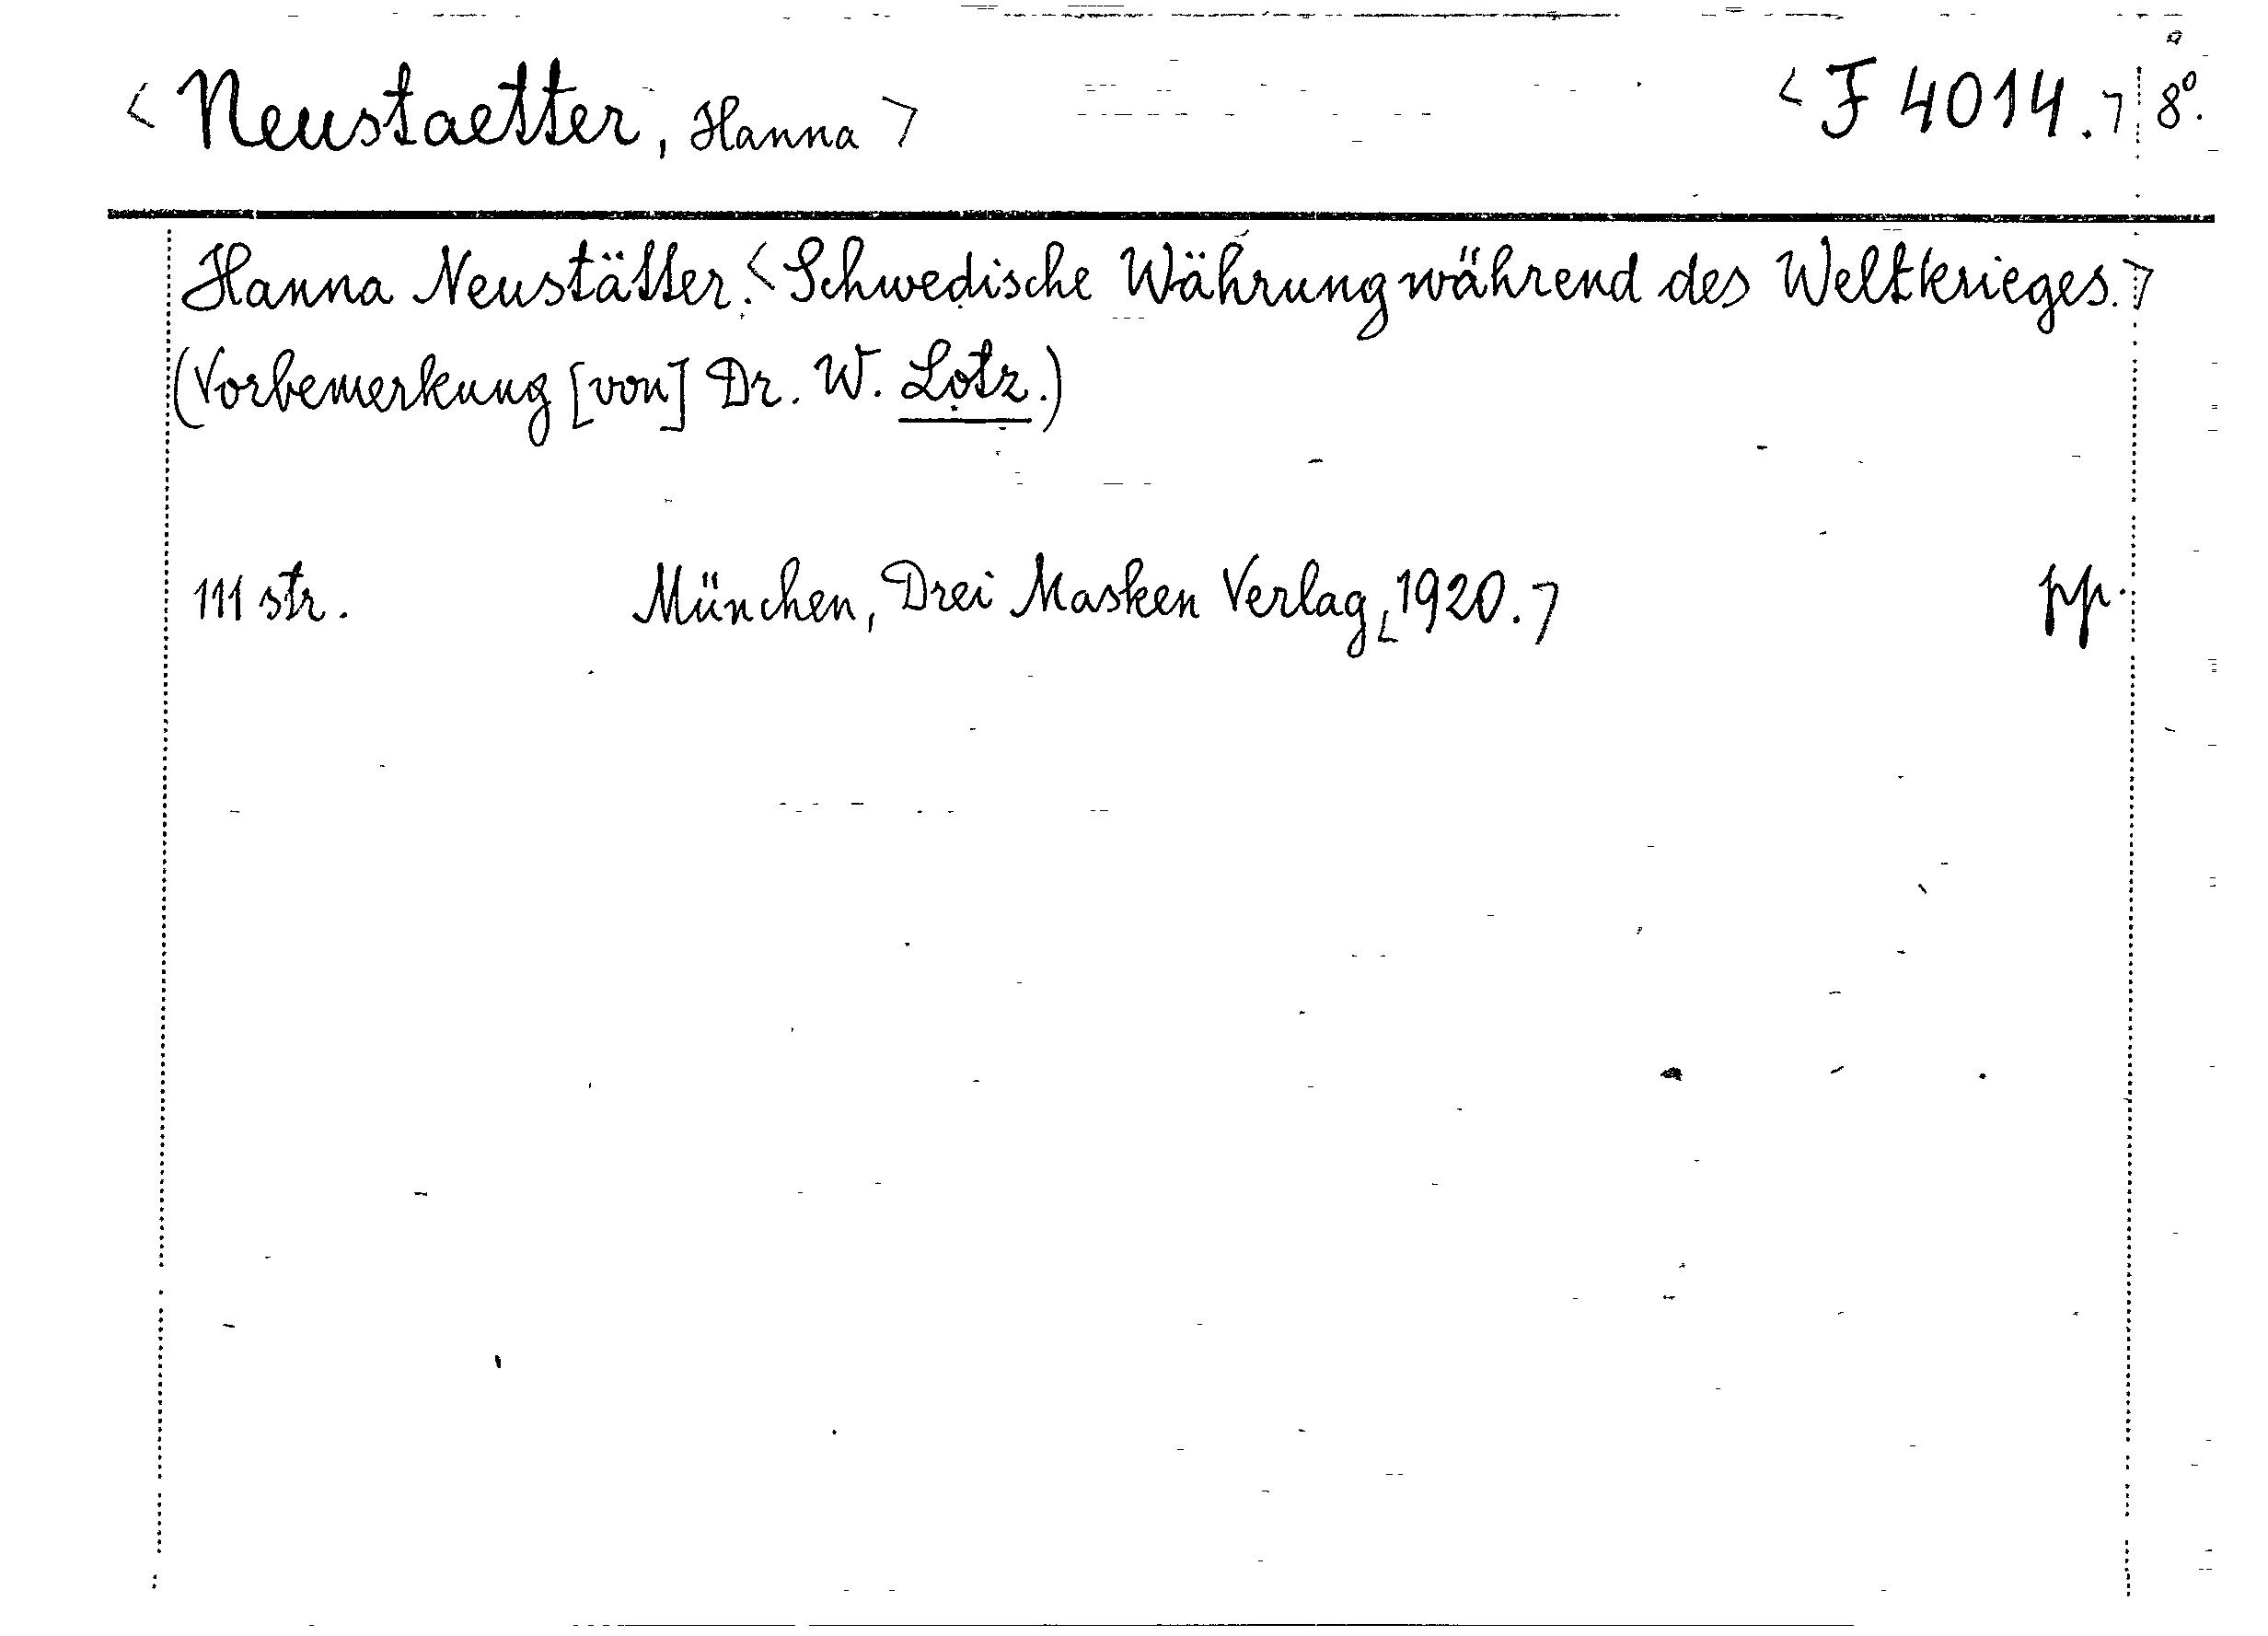 <Neustaetter, Hanna> <F 4014.> 8°.
Hanna Neustätter. <Schwedische Währung während des Weltkrieges.>
(Vorbemerkung [von] Dr. W. Lotz.)
111 str. München, Drei Masken Verlag, 1920.> pp.